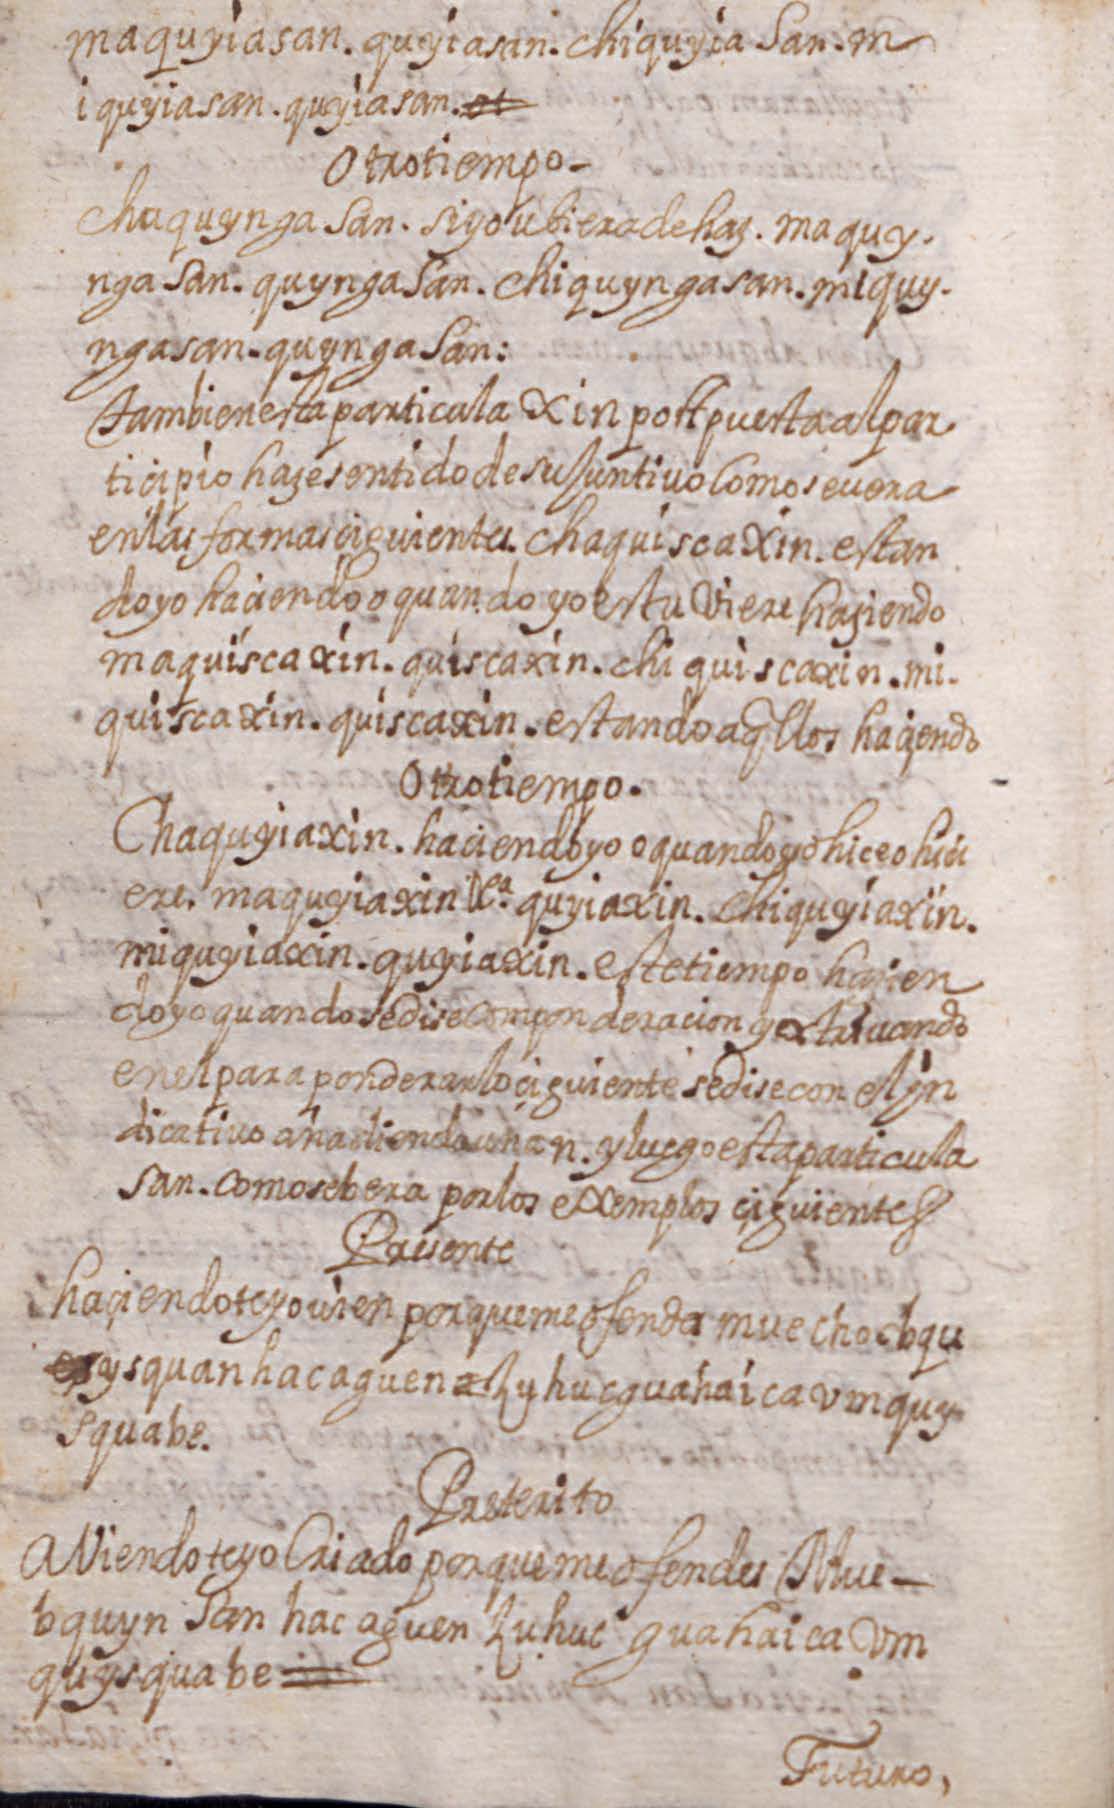 maquyiasan. quyiasan. chiquyia san. m
i quyiasan. quyiasan.
Otro tiempo-
chaquynga san. si yo ubiera de haz. maquy.
nga san. quynga san. chiquyngasan. miquy.
ngasan. quynga san:
tambien esta particula xin postpuesta al par
ticipio haze sentido de sujuntiuo como se uera
en las formas ciguientes. chaquisca xin. estan
do yo haciendo o quando yo estuviere haziendo
maquisca xin. quiscaxin. chi quiscaxin. mi.
quisca xin. quiscaxin. estando aqllos haçiendo
Otro tiempo.
Chaquyiaxin. haciendo yo o quando yo hice o hici
ere. maquyiaxin quyiaxin. chiquyiaxin.
miquyiaxin. quyiaxin. este tiempo hazien
do yo quando se dise con ponderacion y
en el para ponderar lo ciguiente se dise con el yn
dicatiuo añadiendo una n. y luego esta particula
san. como se bera por los exemplos ciguientes
Presente
haçiendote yo uien porque me ofendes mue cho bqu
ysquan hac aguen Zuhuc guahaica vm quy
squa be.
Preterito
AViendote yo Criado porque me ofendes Mue-
bquyn san hac aguen Zuhuc guahaica vm
quysqua be
Futuro,